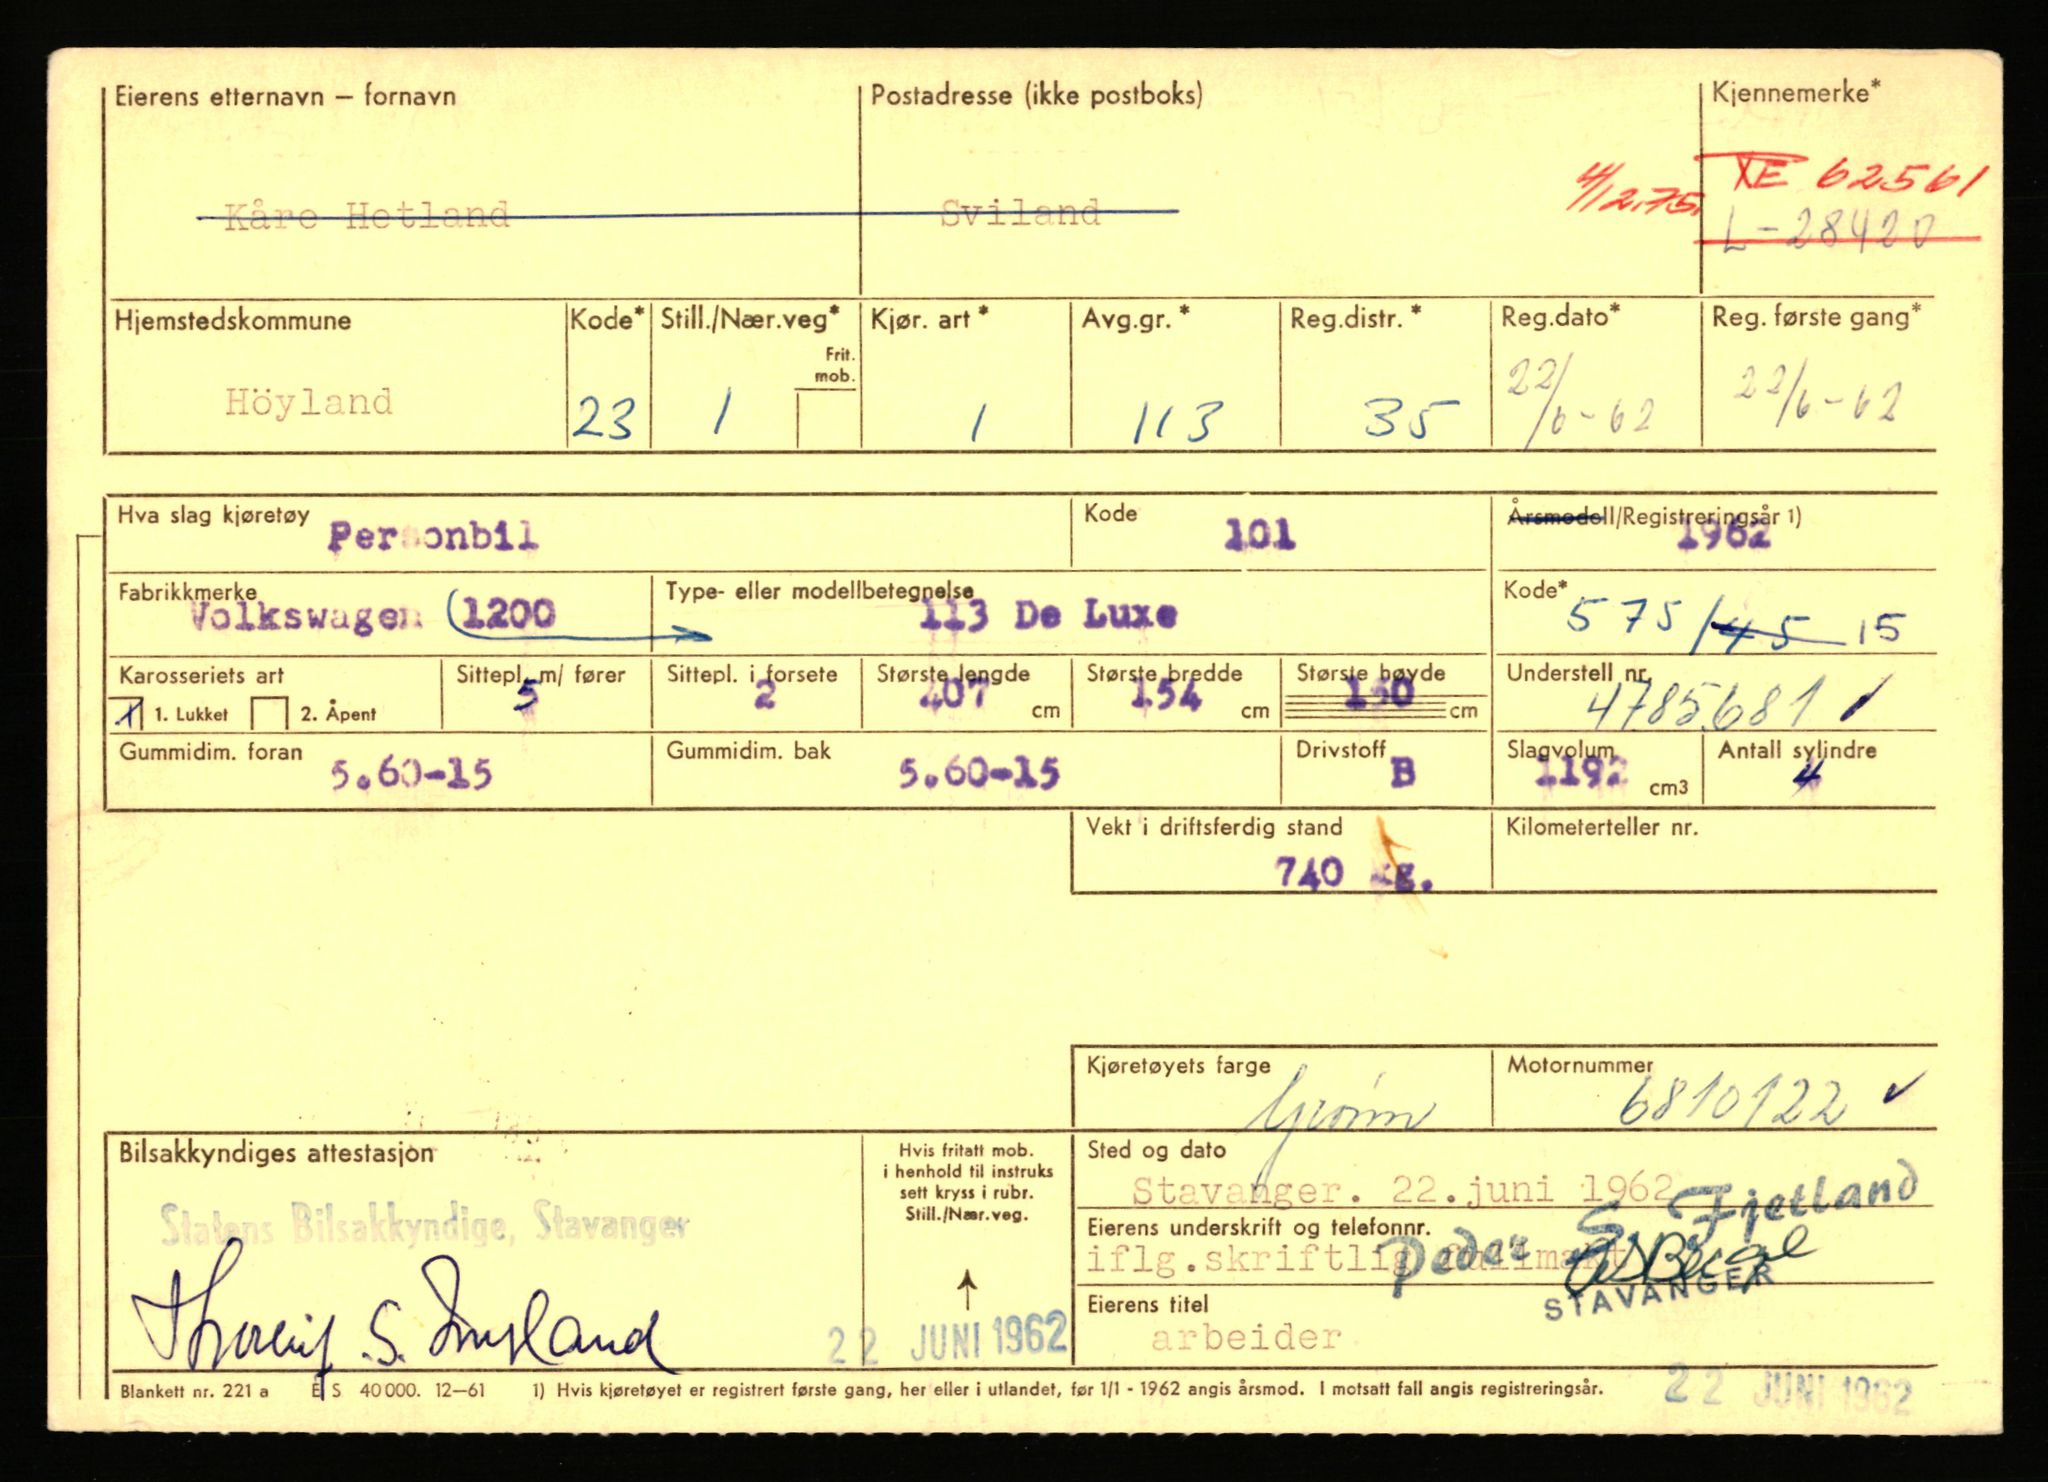 Eierens etternavn – fornavn
Postadresse (ikke postboks)
Kjennemerke*
Kåre Hetland
Sviland
4/12.75.
XE 62561
L-28420
Hjemstedskommune
Kode*
Still./Nær.veg*
Frit. mob.
Kjør. art *
Avg.gr. *
Reg.distr. *
Reg.dato*
Reg. første gang*
Höyland
23
1
1
113
35
22/6-62
22/6-62
Hva slag kjøretøy
Personbil
Kode
101
Årsmodell/Registreringsår 1)
1962
Fabrikkmerke
Volkswagen (1200
Type- eller modellbetegnelse
113 De Luxe
Kode*
575/45 15
Karosseriets art
1. Lukket
2. Åpent
Sittepl. m/ fører
5
Sittepl. i forsete
2
Største lengde
407 cm
Største bredde
154 cm
Største høyde
150 cm
Understell nr.
4785681
Gummidim. foran
5.60-15
Gummidim. bak
5.60-15
Drivstoff
B
Slagvolum
1192 cm3
Antall sylindre
4
Vekt i driftsferdig stand
740 kg.
Kilometerteller nr.
Kjøretøyets farge
Grønn
Motornummer
6810122
Bilsakkyndiges attestasjon
Statens Bilsakkyndige, Stavanger
Hvis fritatt mob.
i henhold til instruks
sett kryss i rubr.
Still./Nær.veg.
22 JUNI 1962
Sted og dato
Stavanger. 22.juni 1962
Eierens underskrift og telefonnr.
iflg.skriftlig fullmakt
Peder S. Fjetland
STAVANGER
Eierens titel
arbeider
22 JUNI 1962
Blankett nr. 221 a E S 40 000. 12–61 1) Hvis kjøretøyet er registrert første gang, her eller i utlandet, før 1/1 - 1962 angis årsmod. I motsatt fall angis registreringsår.